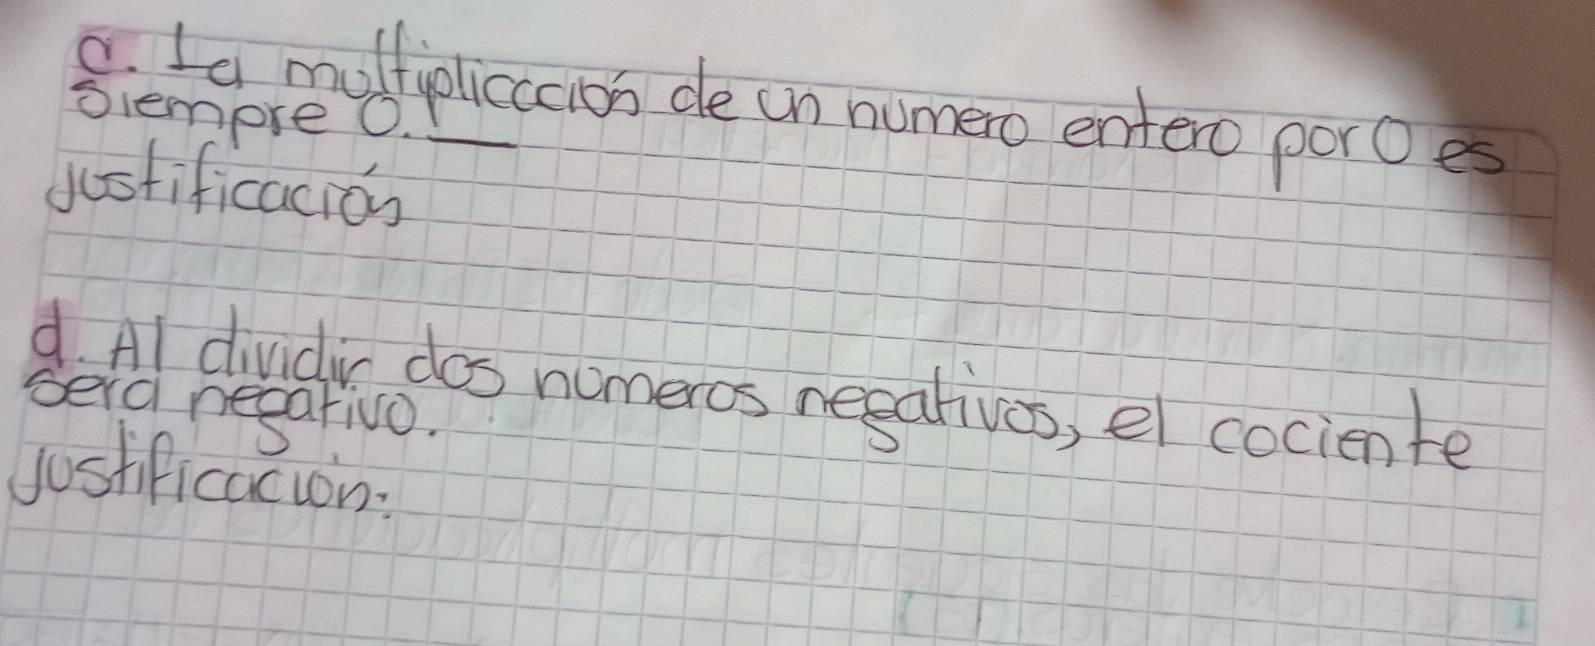 c. La multiplicación de un numero entero por 0 es
siempre 0. ___
Justificación
d. Al dividir dos números negativos, el cociente
será negativo.
Justificación: